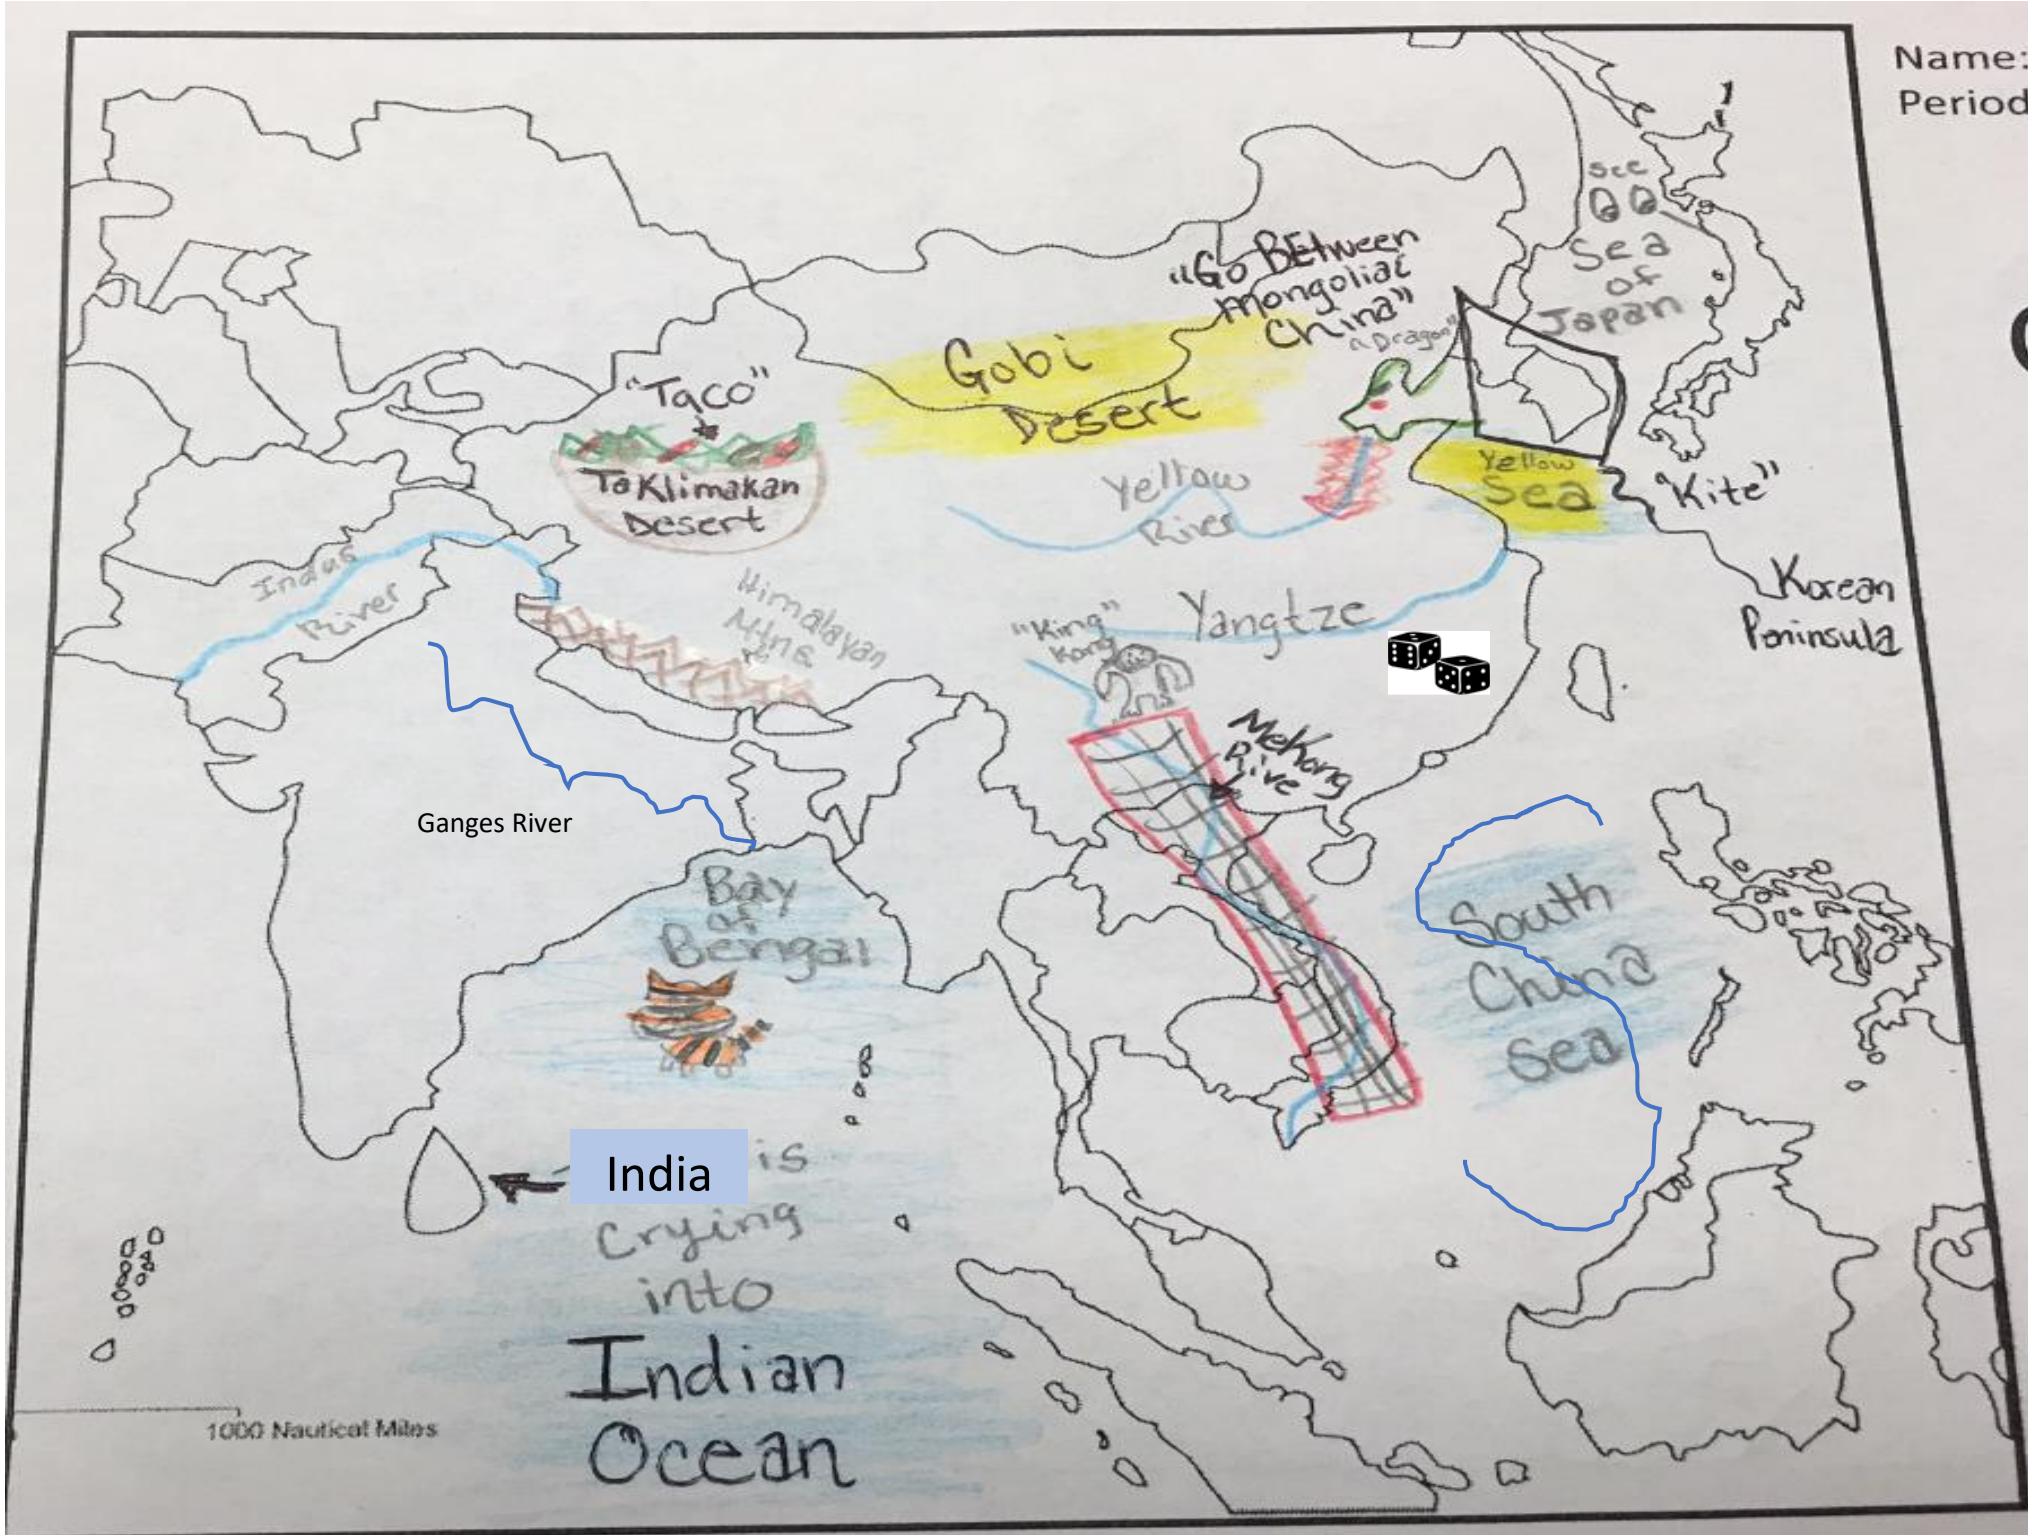 Name:
Period
see
Sea
of
Japan
"Go BEtween
Mongolia &
China"
"Dragon"
Gobi
Desert
"Taco"
Taklimakan
Desert
Yellow
River
Yellow
Sea
"Kite"
Korean
Peninsula
Indus
River
Himalayan
Mtns
"King
Kong"
Yangtze
Mekong
Rive
Ganges River
Bay
of
Bengal
South
China
Sea
India is
crying
into
Indian
Ocean
1000 Nautical Miles